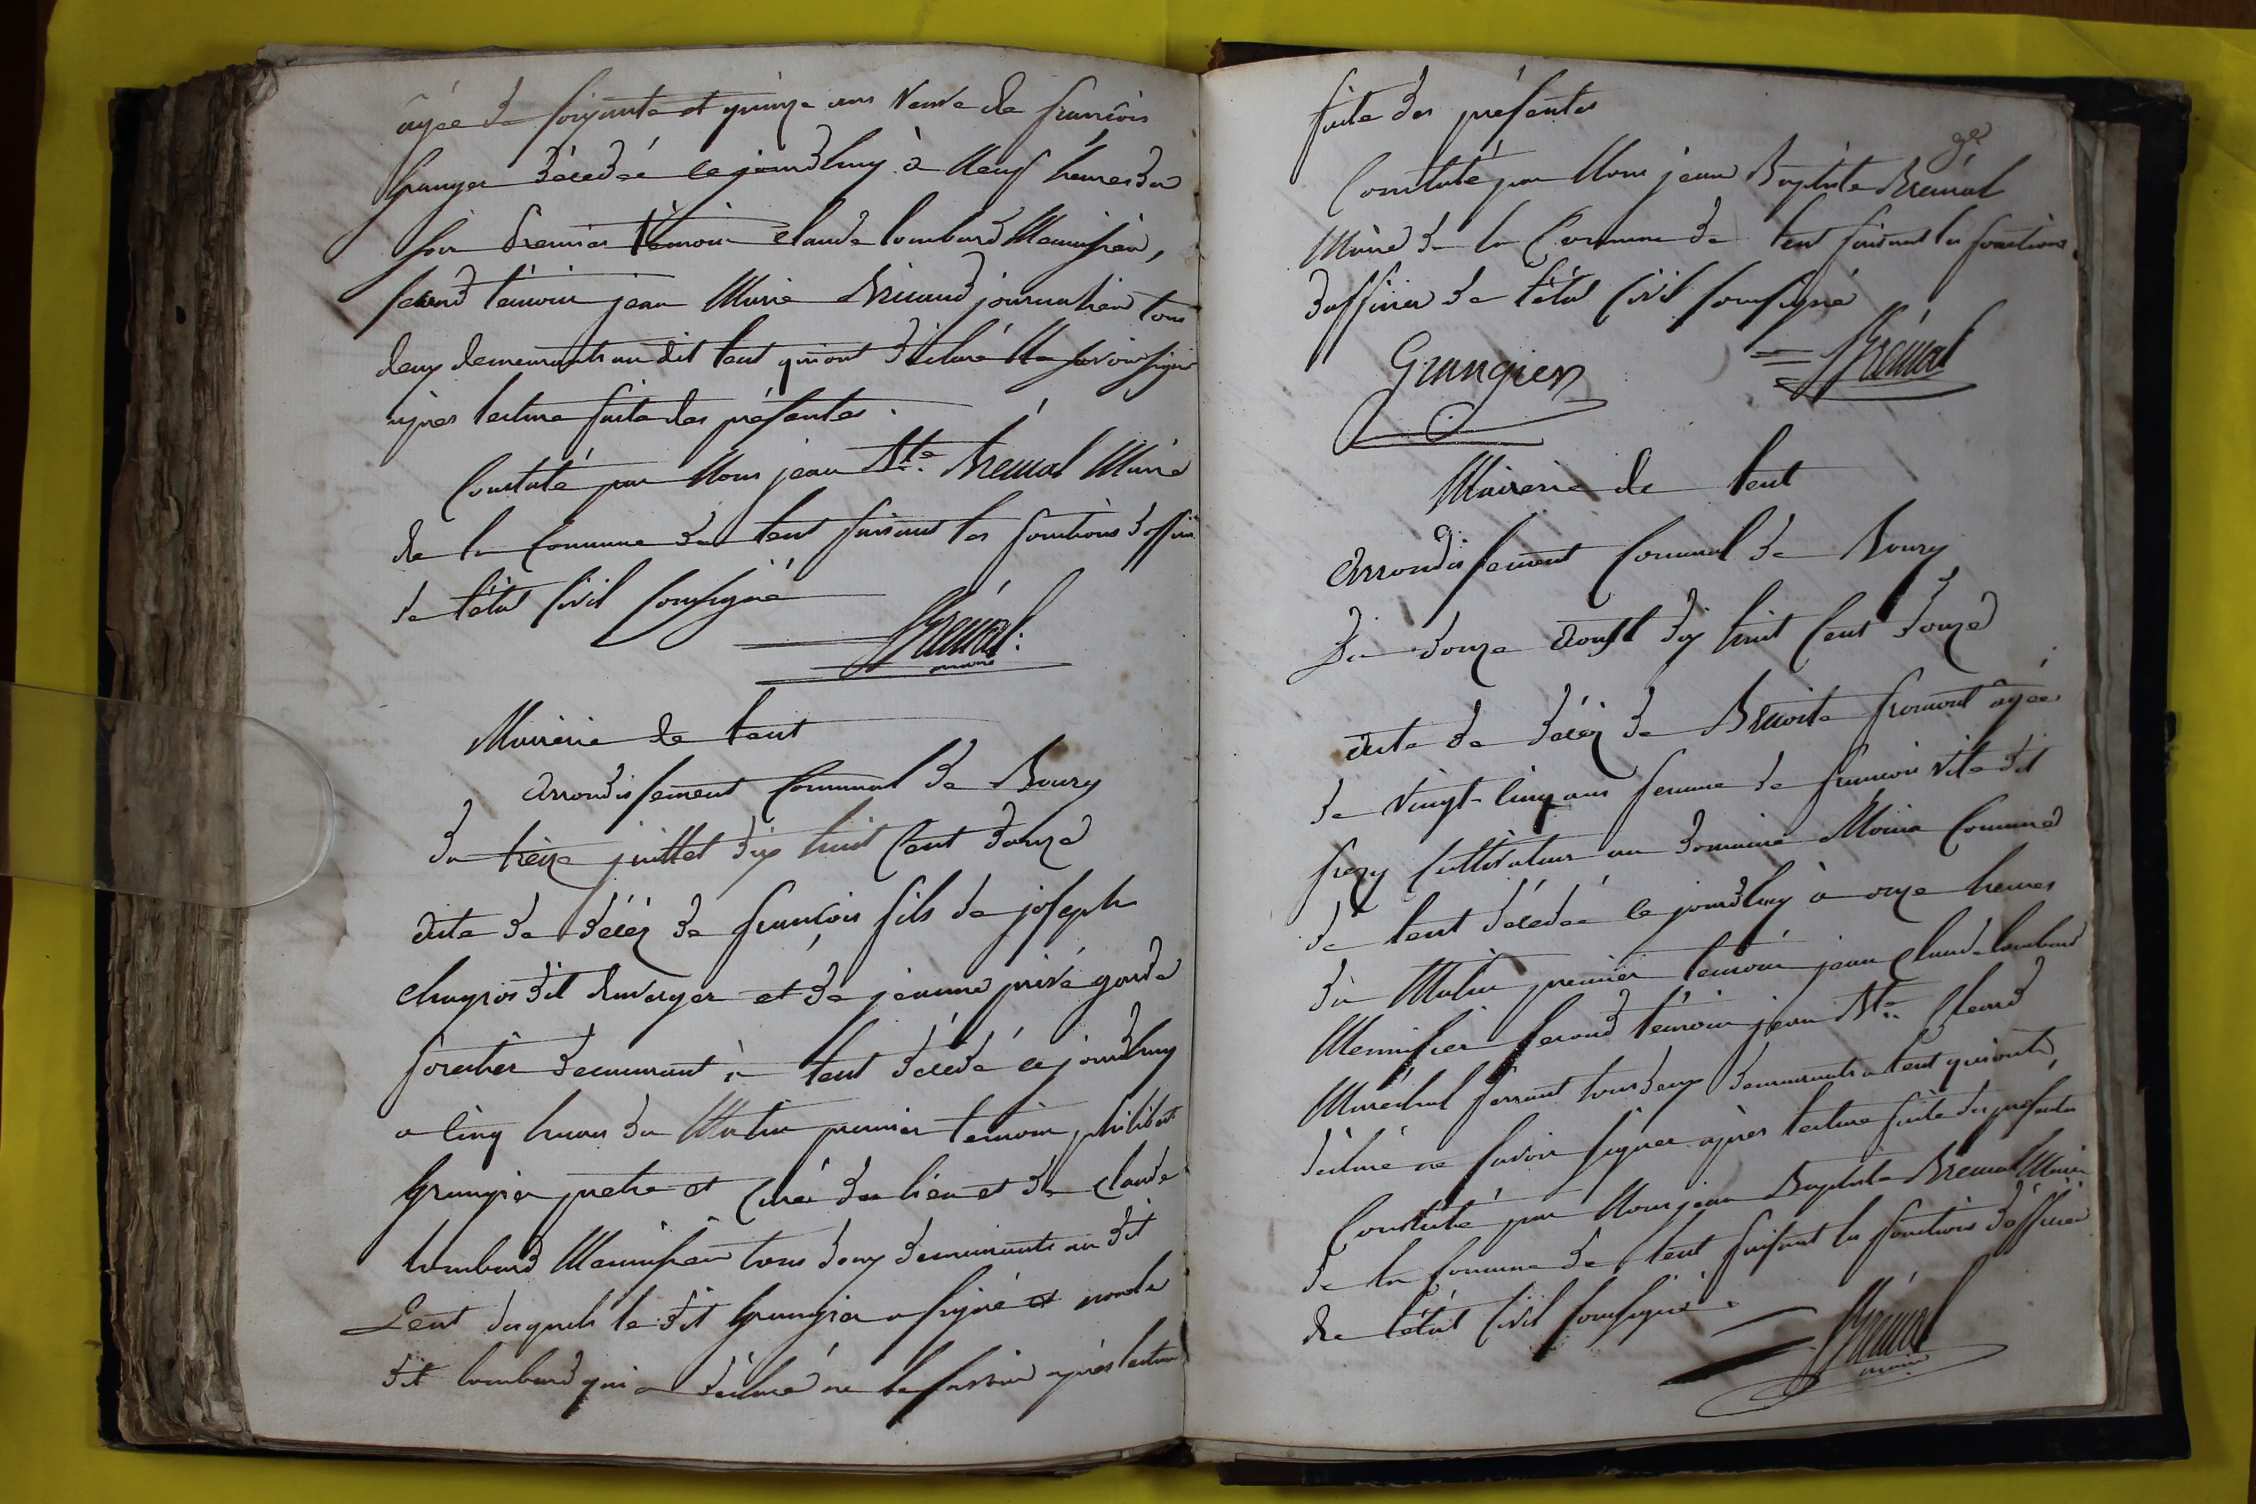 âgée de soixante et quinze ans Veuve de françois
Granger décédée cejourdhuy à Neuf heures du
soir Premier témoin Claude lombard Menuisier,
second témoin jean Marie Bricaud journalier tous
deux demeurants au dit lent qui ont déclaré Ne savoir signer
après lecture faite des présentes.
Constaté par Nous jean Bte Brevial Maire
de la Commune de lent faisant les fonctions d'officier
de l'état Civil soussigné
Brevial
maire
Mairerie de lent
arrondissement Communal de Bourg
du treize juillet dix huit Cent douze
acte de décèz de françois fils de joseph
dit duverger et de jeanne privé garde
forestier demeurant à lent décédé cejourdhuy
a cinq heures du Matin premier temoin philibert
Grangier pretre et Curé du lieu et de Claude
lombard Menuisier tous deux demeurants au dit
Lent desquels le dit Grangier a signé et non le
dit lombard qui a déclaré ne le savoir après lecture
faite des présentes
Constaté par Nous jean Baptiste Brevial
Maire de la Commune de lent faisant les fonctions
d'officier de l'état Civil soussigné
Grangier Brevial
Mairerie de lent
arrondissement Communal de Bourg
Du douze aoust dix huit Cent douze
acte de décèz de Benoite fromont âgée
de vingt-cinq ans femme de françois vite dit
frezy Cultivateur au domaine Moina Commune
de lent décédée cejourdhuy à onze heures
du Matin premier temoin jean Claude lombard
Menuisier second témoin jean Bte
Maréchal ferrant tous deux demeurants a lent qui ont
déclaré ne savoir signer après lecture faite des présentes
Constaté par Nous jean Baptiste Brevial Maire
de la Commune de lent faisant les fonctions d'officier
de l'état Civil soussigné.
Brevial
maire